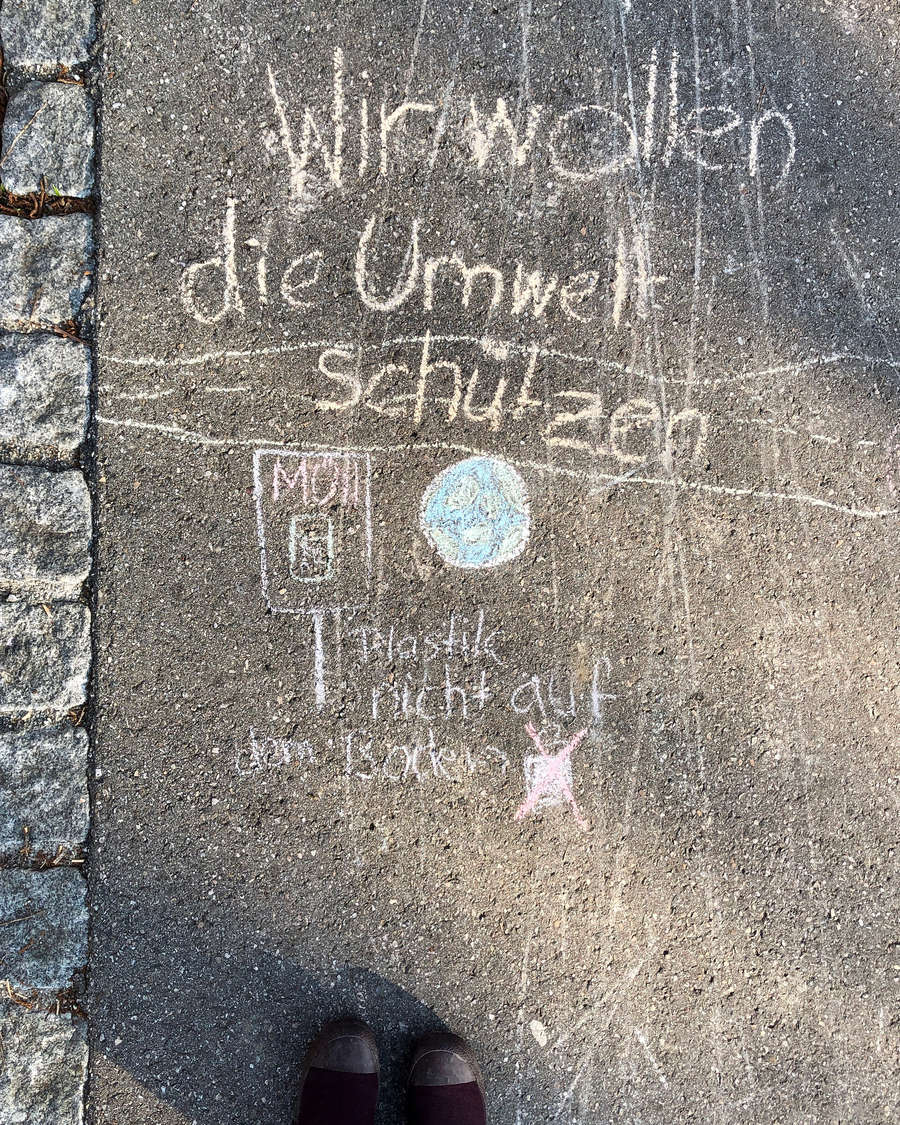 Wir wollen
die Umwelt
schützen
Müll
Plastik
nicht auf
dem Boden